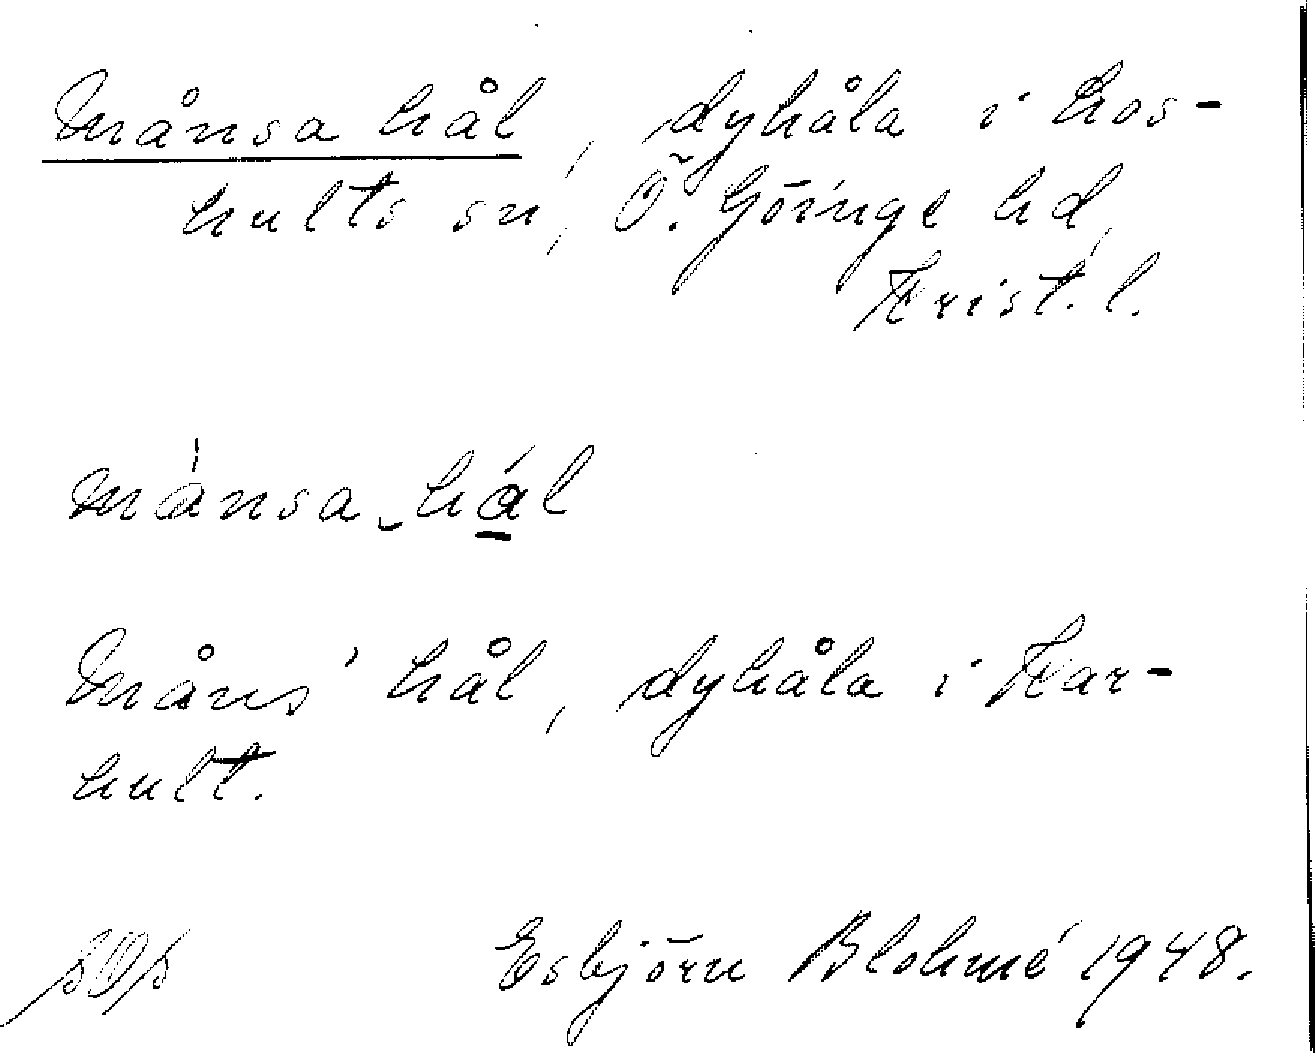 Månsa hål, dyhåla i Los-
hults sn, Ö. Göinge hd,
Krist. l.
mánsa‿hál
Måns' hål, dyhåla i Kar-
hult.
Esbjörn Blohmé 1948.